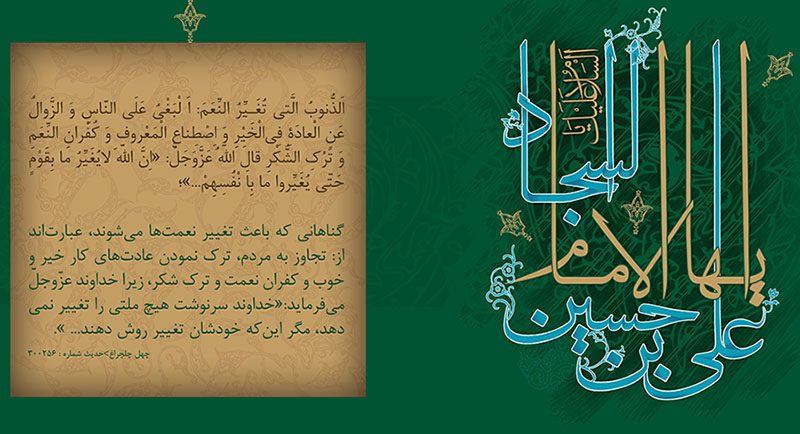 اَلذُّنوبُ الَّتی تُغَـیِّرُ النِّعَمَ: اَ لْبَغْیُ عَلَی النّاسِ وَ الزَّوالُ
عَنِ الْعادَةِ فِی‌الْخَیْرِ وَ اصْطِناعِ الْمَعْروفِ وَ کُفْرانِ النِّعَمِ
وَ تُرْکِ الشُّکْرِ قالَ اللّهُ عَزَّوَجَلَّ: «انَّ اللّهَ لایُغَیِّرُ ما بِقَوْمٍ
حَتّی یُغَیِّروا ما بِاَ نْفُسِهِمْ...»؛
گناهانی که باعث تغییر نعمت‌ها می‌شوند، عبارت‌اند
از: تجاوز به مردم، ترک نمودن عادت‌های کار خیر و
خوب و کفران نعمت و ترک شکر، زیرا خداوند عزّوجلّ
می‌فرماید:«خداوند سرنوشت هیچ ملتی را تغییر نمی
دهد، مگر این‌که خودشان تغییر روش دهند... ».
چهل چلچراغ>حدیث شماره : ۳۰۰۲۵۶
السلام علیک یا
ایها الامام
السجاد
علی بن حسین